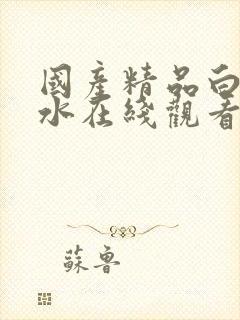 國產精品白
水在綫觀看
蘇魯